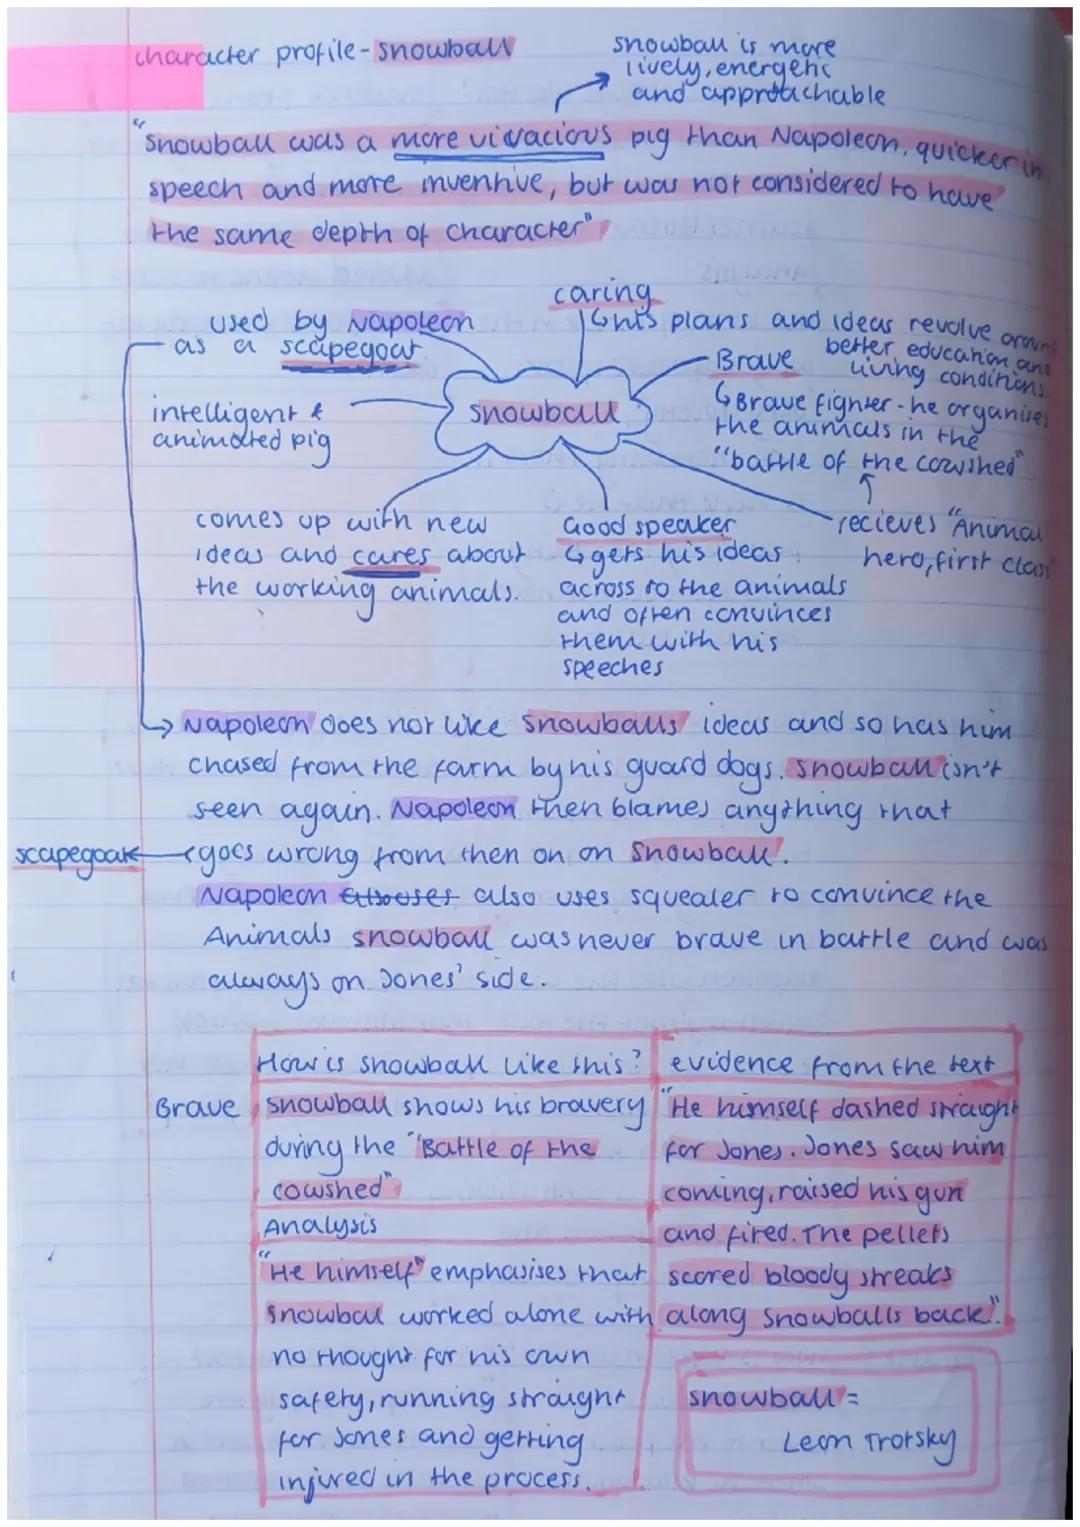 character profile - snowball
snowball is more
lively, energetic
and approachable
"Snowball was a more vivacious pig than Napoleon, quicker in
speech and more inventive, but was not considered to have
the same depth of character"
used by Napoleon
as a scapegoat
caring
↳ his plans and ideas revolve around
better education and
living conditions.
Brave
↳ Brave fighter - he organises
the animals in the
"battle of the cowshed"
intelligent &
animated pig
snowball
comes up with new
ideas and cares about
the working animals.
Good speaker
↳ gets his ideas
across to the animals
and often convinces
them with his
speeches
recieves "Animal
hero, first class"
→ Napoleon does not like Snowballs ideas and so has him
chased from the farm by his guard dogs. Snowball isn't
seen again. Napoleon then blames anything that
scapegoat
goes wrong from then on on Snowball.
Napoleon also uses squealer to convince the
Animals snowball was never brave in battle and was
always on Jones' side.
How is snowball like this?
evidence from the text
Brave
snowball shows his bravery
during the "Battle of the
cowshed"
"He himself dashed straight
for Jones. Jones saw him
coming, raised his gun
and fired. The pellets
scored bloody streaks
along Snowballs back".
Analysis
"He himself" emphasises that
snowball worked alone with
no thought for his own
safety, running straight
for Jones and getting
injured in the process.
snowball =
Leon Trotsky